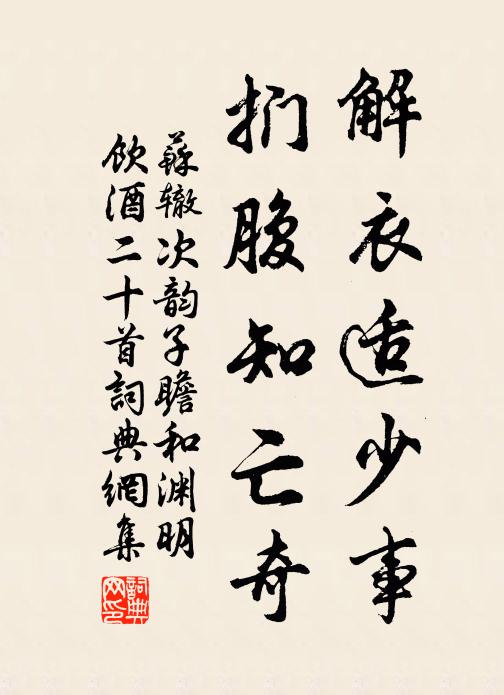 解衣适少事
扪腹知亡奇
蘇辙次韵子瞻和渊明
飲酒二十首詞典網集